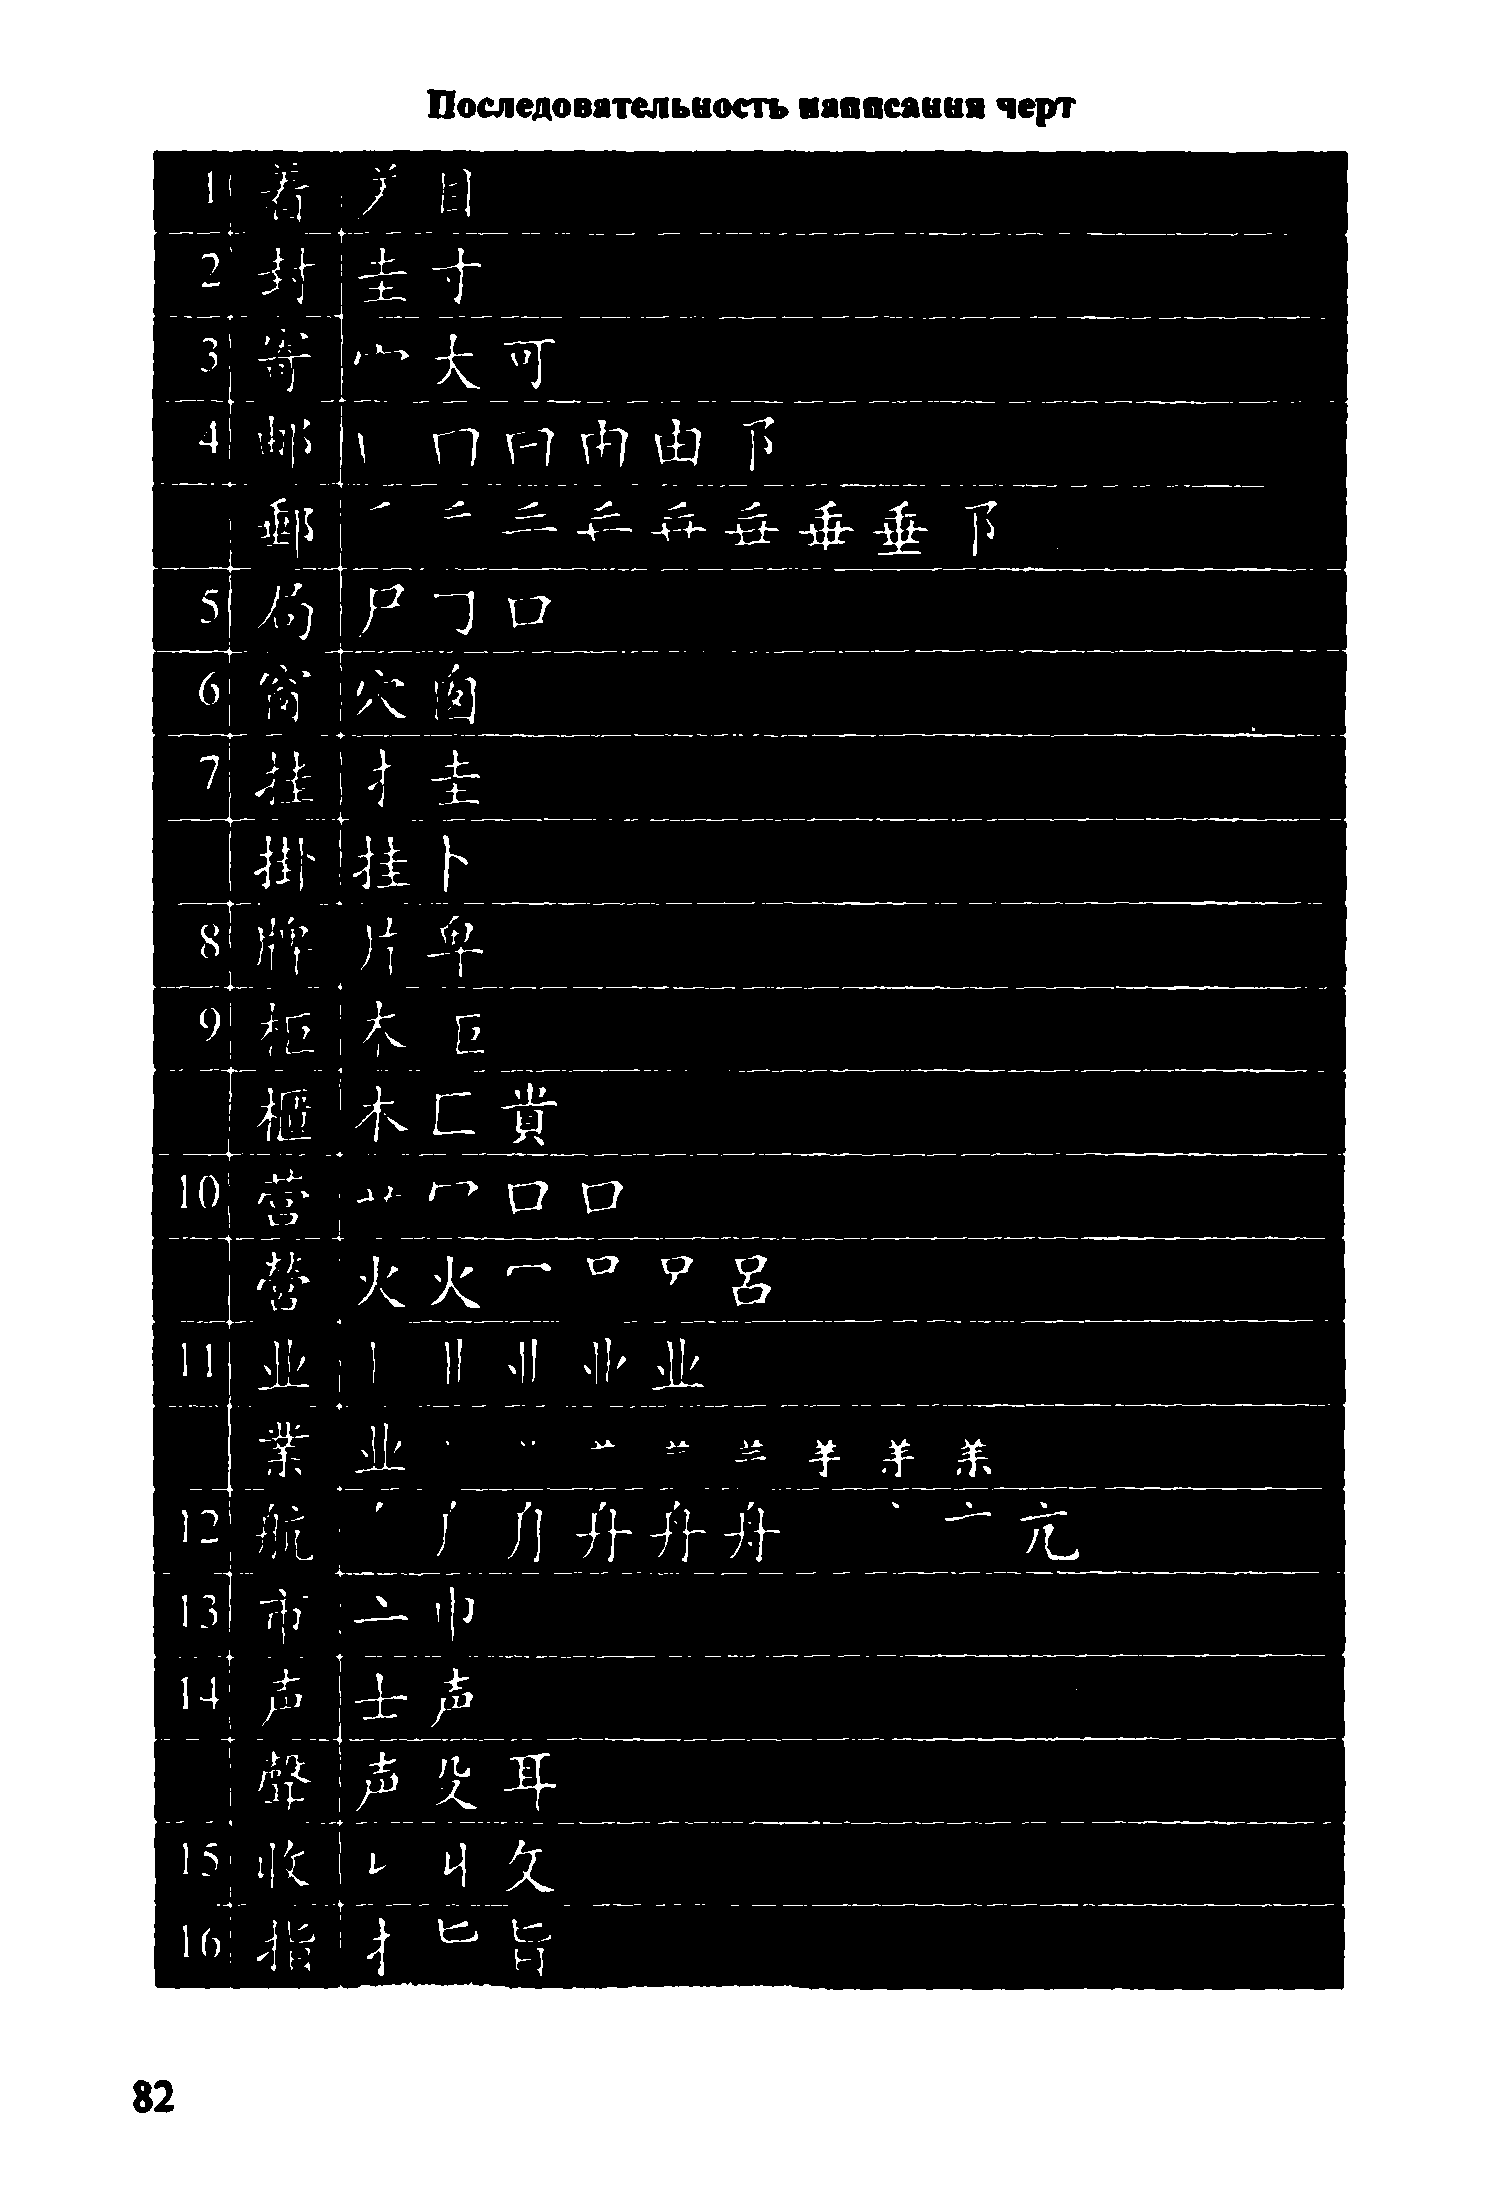 Последовательность написания черт
1 着 目
2 封 圭 寸
3 寄 宀 大 可
4 邮 丨 冂 曰 由 阝
郵 垂 阝
5 局 尸 口
6 窗 穴 囱
7 挂 扌 圭
掛 挂 卜
8 牌 片 卑
9 柜 木 巨
櫃 木 匚 貴
10 营 艹 冖 口 口
營 火 火 冖 口 呂
11 业 丨 业
業 业
12 航 舟 丶 亠 亢
13 市 亠 巾
14 声 士 声
聲 声 殳 耳
15 收 丩 攵
16 指 扌 匕 旨
82